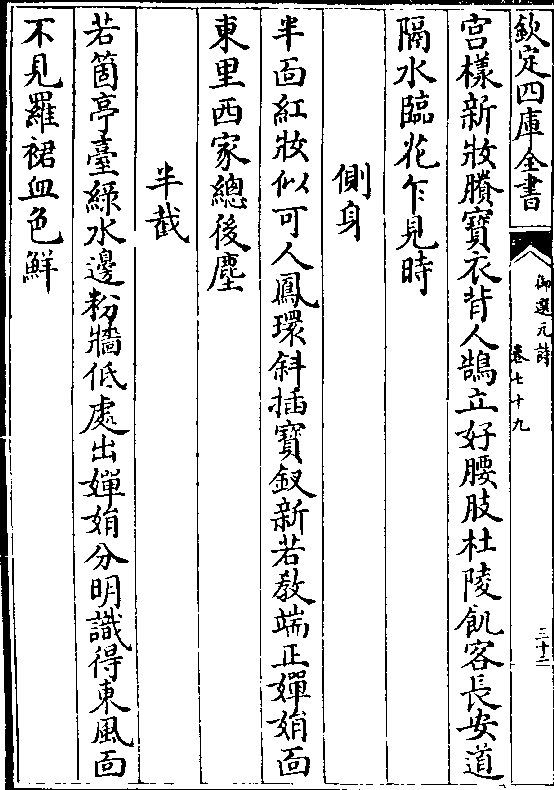 欽定四庫全書
御選元詩
卷七十九
三十二
宫樣新妝賸寶衣背人鵠立好腰肢杜陵飢客長安道
隔水臨花乍見時
側身
半面紅妝似可人鳳環斜插寶釵新若教端正嬋娟面
東里西家總後塵
半截
若箇亭臺緑水邊粉牆低處出嬋娟分明識得東風面
不見羅裙血色鮮